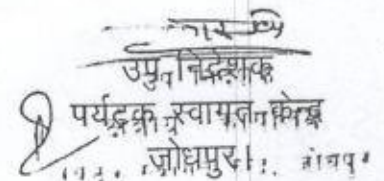 उप निदेशक
पर्यटक स्वागत केन्द्र
जोधपुर।